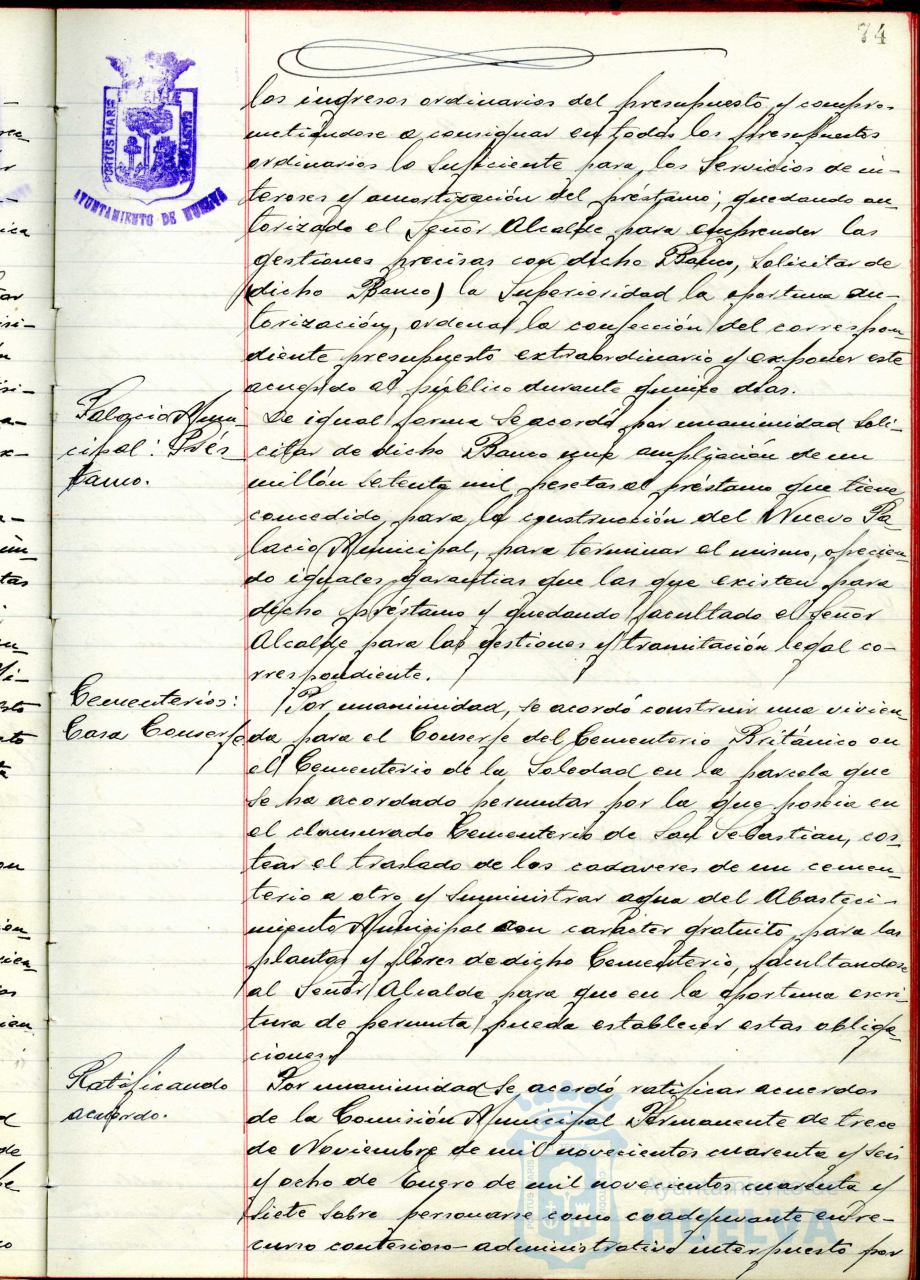 74
PORTUS MARIS
ET TERRE
CUSTODIA
AYUNTAMIENTO DE HUELVA
los ingresos ordinarios del presupuesto y compro-
metiendose a consignar en todos los presupuestos
ordinarios lo suficiente para los servicios de in-
tereses y amortización del préstamo; quedando au-
torizado el Señor Alcalde para emprender las
gestiones precisas con dicho Banco, solicitar de
(dicho Banco) la Superioridad la oportuna au-
torización, ordenar la confección del correspon-
diente presupuesto extraordinario y exponer este
acuerdo al público durante quince dias.
Palacio Muni-
cipal: Prés-
tamo.
De igual forma se acordó por unanimidad soli-
citar de dicho Banco una ampliación de un
millón setenta mil pesetas al préstamo que tiene
concedido para la construcción del Nuevo Pa-
lacio Municipal, para terminar el mismo, ofrecien-
do iguales garantias que las que existen para
dicho préstamo y quedando facultado el Señor
Alcalde para las gestiones y tramitación legal co-
rrespondiente.
Cementerios:
Casa Conserje
Por unanimidad, se acordó construir una vivien-
da para el Conserje del Cementerio Británico en
el Cementerio de la Soledad en la parcela que
se ha acordado permutar por la que poseia en
el clausurado Cementerio de San Sebastian, cos-
tear el traslado de los cadaveres de un cemen-
terio a otro y suministrar agua del Abasteci-
miento Municipal con carácter gratuito para las
plantas y flores de dicho Cementerio, facultandose
al Señor Alcalde para que en la oportuna escri-
tura de permuta pueda establecer estas obliga-
ciones.
Ratificando
acuerdo.
Por unanimidad se acordó ratificar acuerdos
de la Comisión Municipal Permanente de trece
de Noviembre de mil novecientos cuarenta y seis
y ocho de Enero de mil novecientos cuarenta y
siete sobre personarse como coadyuvante en re-
curso contencioso-administrativo interpuesto por
Ayuntamiento de
HUELVA